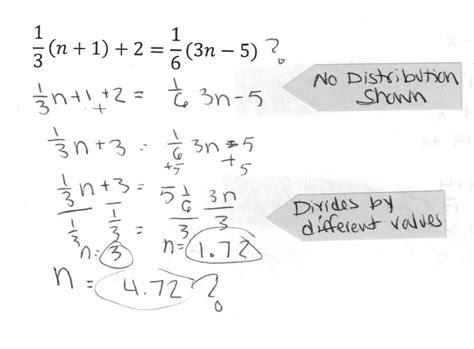 1/3 (n + 1) + 2 = 1/6 (3n − 5) ?
1/3 n + 1 + 2 = 1/6 3n − 5
+
No Distribution
Shown
1/3 n + 3 = 1/6 3n − 5
+5 +5
1/3 n + 3 = 5 1/6 3n
1/3 1/3 = 3 3
Divides by
different values
n = 3 n = 1.72
n = 4.72 ?